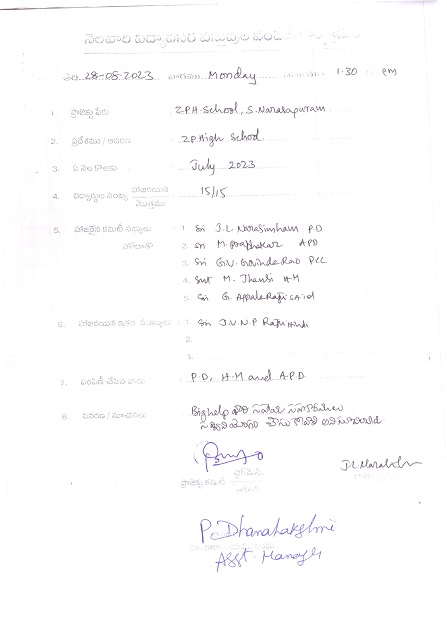 నెలవారి విద్యావసర వస్తువుల పంపిణీ
తేది 28-08-2023 వారము Monday సమయం 1.30 PM
1. ప్రాజెక్టు పేరు Z.P.H. School, S. Narasapuram
2. ప్రదేశము / ఆవరణ Z.P High School
3. ఏ నెల కొరకు July 2023
4. విద్యార్థుల సంఖ్య హాజరయిన / మొత్తము 15/15
5. హాజరైన కమిటీ సభ్యులు 1. Sri J.L Narasimham P.D
హోదాతో 2. Sri M. Prabhakar APD
3. Sri G.V. Govinda Rao PCC
4. Smt M. Jhansi H.M
5. Sri G. Appala Raju SAid
6. హాజరయిన ఇతర సభ్యులు 1. Sri J.V.N.P Raju Hindi
2.
3.
7. పంపిణీ చేసిన వారు P.D, H.M and A.P.D
8. వివరణ / సూచనలు Bighelp వారి
ప్రాజెక్టు కమిటీ ఛైర్మెన్
P. Dhanalakshmi
Asst. Manager